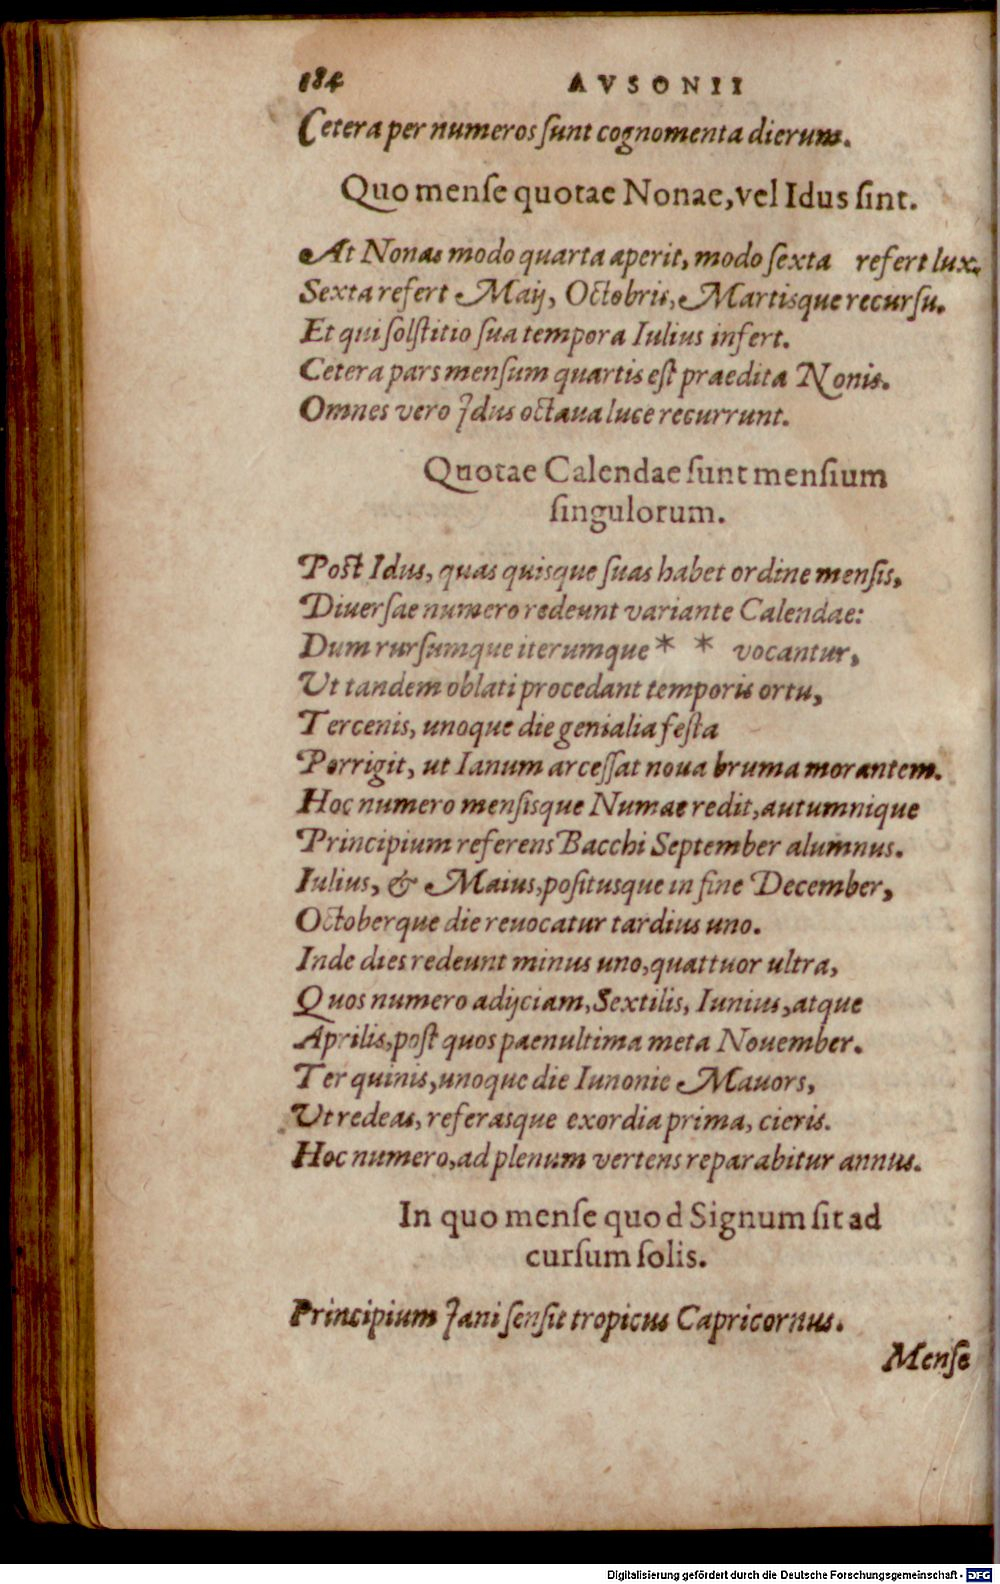 184 AVSONII
Cetera per numeros ſunt cognomenta dierum.
Quo menſe quotae Nonae, vel Idus ſint.
At Nonas modo quarta aperit, modo ſexta refert lux.
Sexta refert Maij, Octobris, Martisque recurſu.
Et qui ſolſtitio ſua tempora Iulius infert.
Cetera pars menſum quartis eſt praedita Nonis.
Omnes vero Idus octaua luce recurrunt.
Quotae Calendae ſunt menſium
ſingulorum.
Poſt Idus, quas quisque ſuas habet ordine menſis,
Diuerſae numero redeunt variante Calendae:
Dum rurſumque iterumque * * vocantur,
Ut tandem oblati procedant temporis ortu,
Tercenis, unoque die genialia feſta
Porrigit, ut Ianum arceſſat noua bruma morantem.
Hoc numero menſisque Numae redit, autumnique
Principium referens Bacchi September alumnus.
Iulius, & Maius, poſitusque in fine December,
Octoberque die reuocatur tardius uno.
Inde dies redeunt minus uno, quattuor ultra,
Quos numero adijciam, Sextilis, Iunius, atque
Aprilis, poſt quos paenultima meta Nouember.
Ter quinis, unoque die Iunonie Mauors,
Ut redeas, referasque exordia prima, cieris.
Hoc numero, ad plenum vertens reparabitur annus.
In quo menſe quod Signum ſit ad
curſum ſolis.
Principium Jani ſenſit tropicus Capricornus.
Menſe
Digitalisierung gefördert durch die Deutsche Forschungsgemeinschaft - DFG